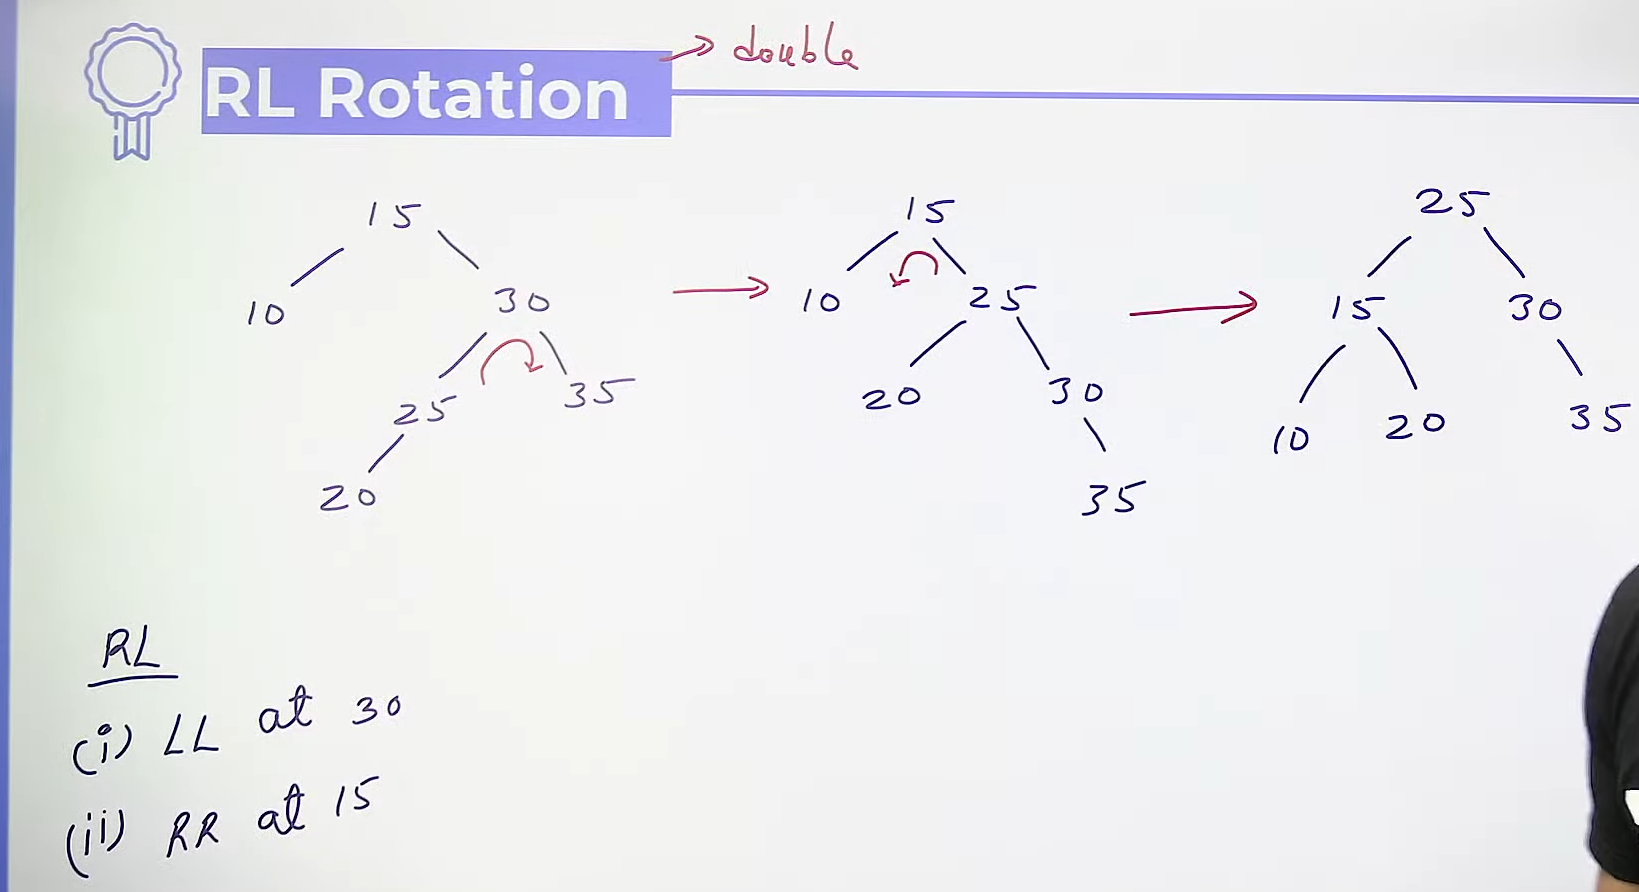 → double
RL Rotation
15
10 30
25 35
20
→
15
10 25
20 30
35
→
25
15 30
10 20 35
RL
(i) LL at 30
(ii) RR at 15